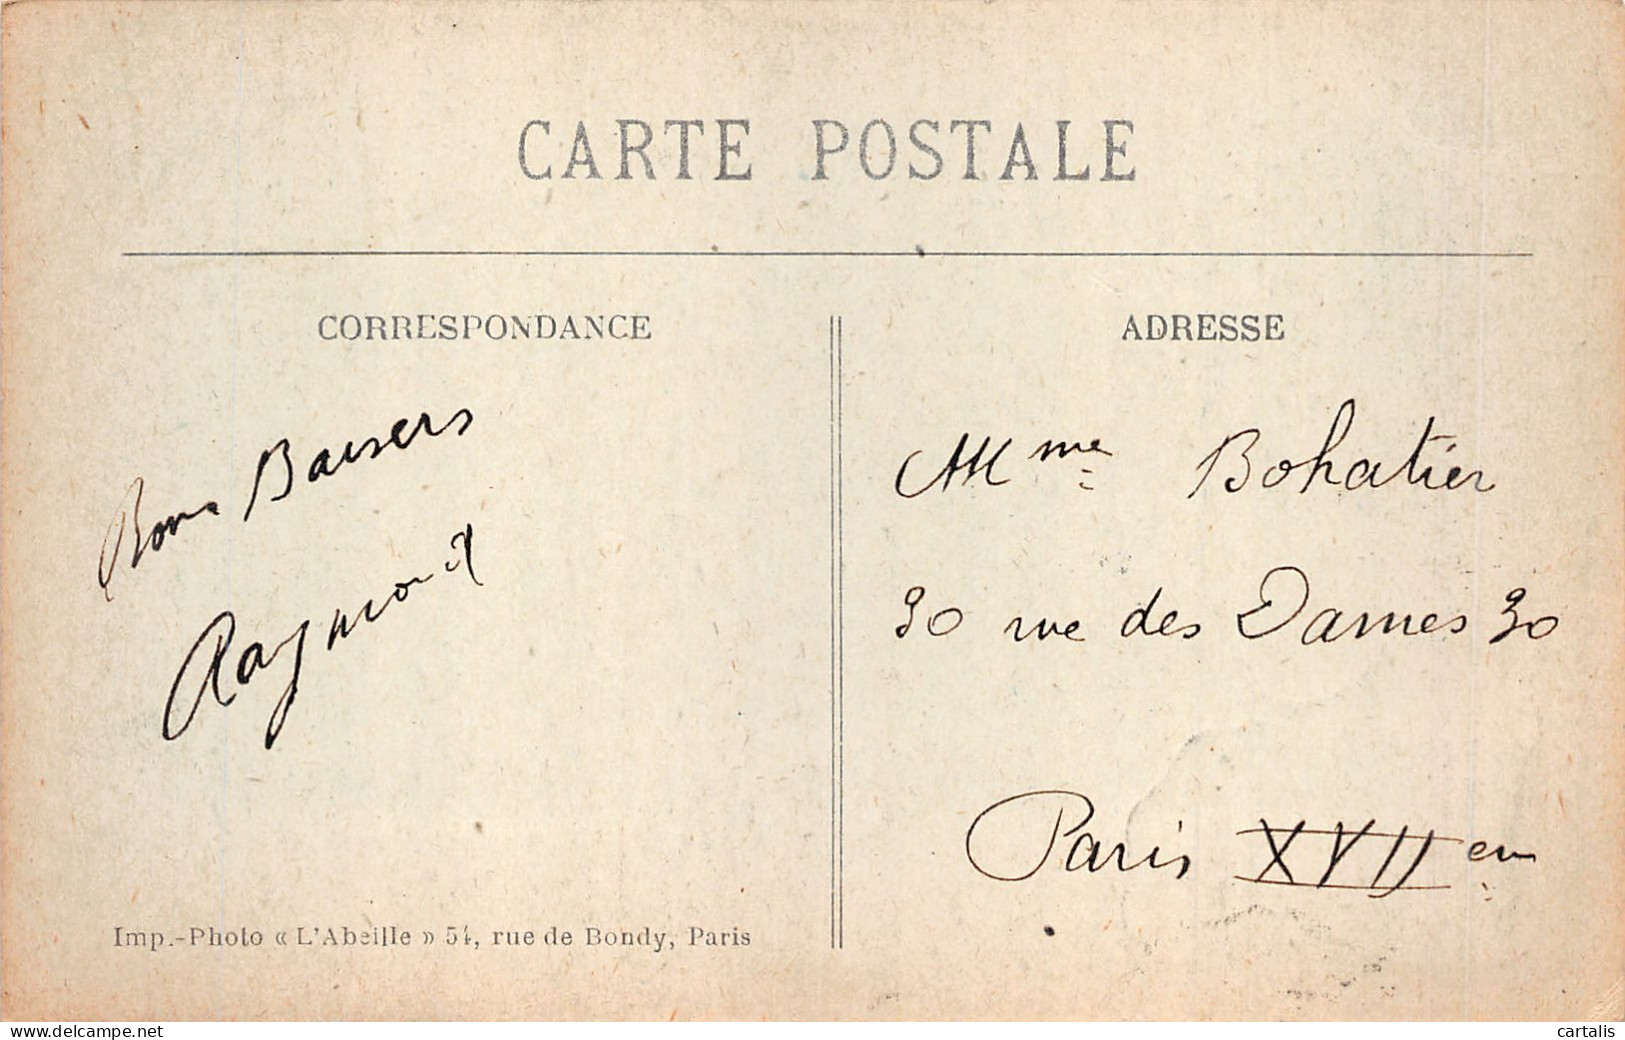 CARTE POSTALE
CORRESPONDANCE
Bons Baisers
Raymond
Imp.-Photo « L'Abeille » 54, rue de Bondy, Paris
ADRESSE
Mme Bohatier
30 rue des Dames 30
Paris XVII em
www.delcampe.net
cartalis